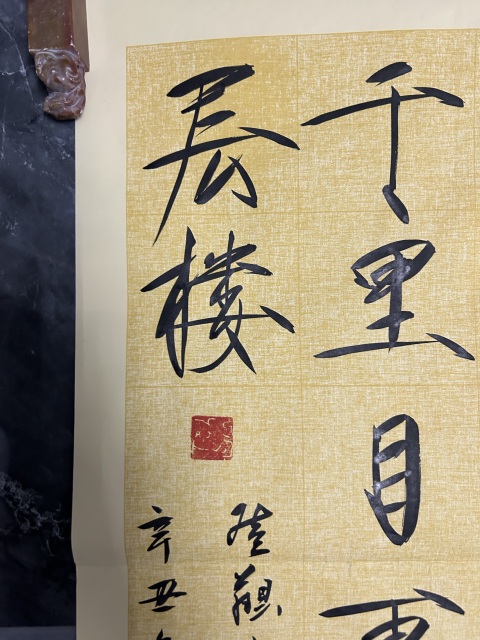 千里目更
层楼
辛丑